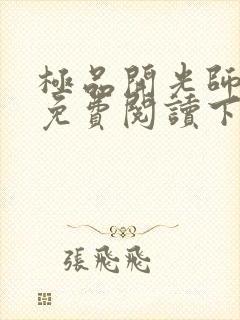 極品開光師
免費閱讀下
張飛飛